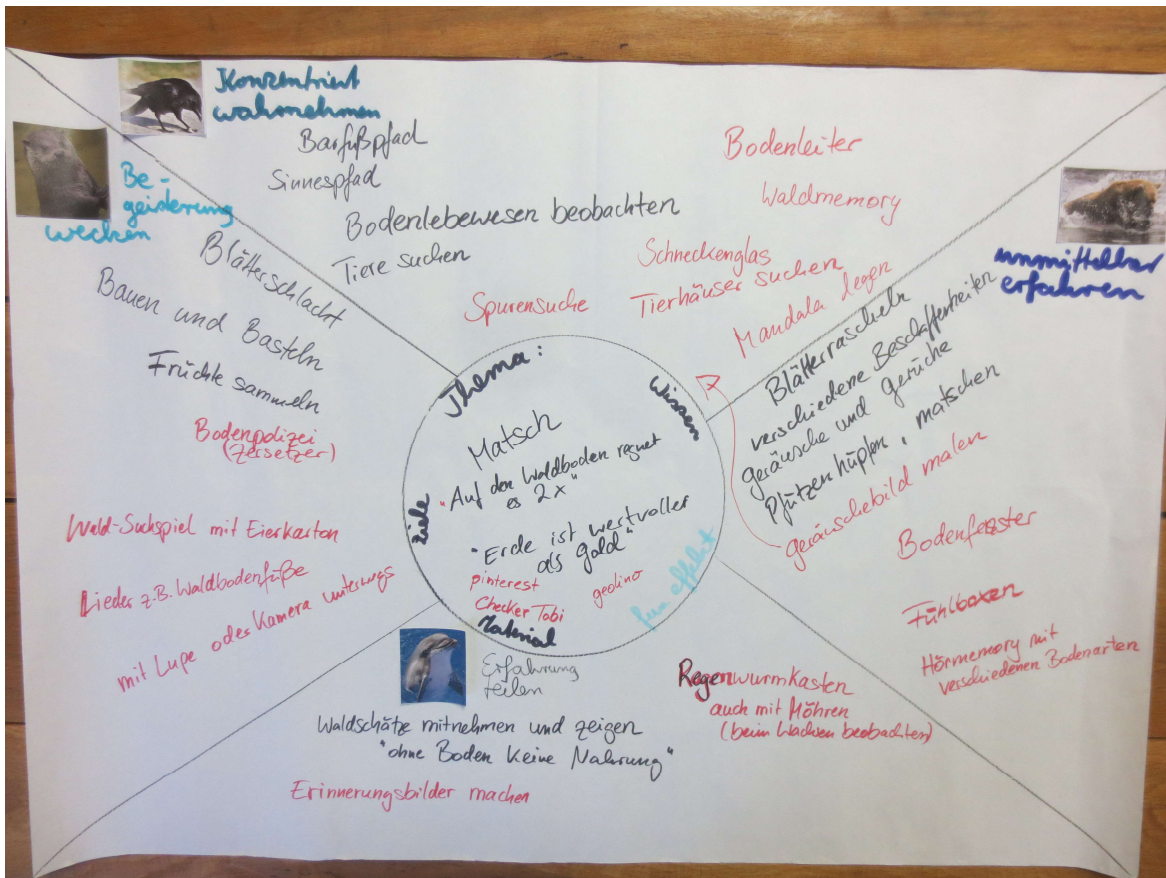 Konzentriert
wahrnehmen
Barfußpfad
Sinnespfad
Bodenlebewesen beobachten
Tiere suchen
Spurensuche
Bodenleiter
Waldmemory
Schneckenglas
Tierhäuser suchen
Mandala legen
Be-
geisterung
wecken
Blätterschlacht
Bauen und Basteln
Früchte sammeln
Bodenpolizei
(Zersetzer)
Wald-Suchspiel mit Eierkarton
Lieder z.B. Waldbodenfüße
mit Lupe oder Kamera unterwegs
Thema:
Wissen
Matsch
"Auf den Waldboden regnet
es 2x"
"Erde ist wertvoller
als Gold"
Ziele
pinterest
geolino
Checker Tobi
Material
fun effekt
unmittelbar
erfahren
Blätterrascheln
verschiedene Beschaffenheiten
geräusche und gerüche
Pfützen hüpfen, matschen
geräuschebild malen
Bodenfenster
Fühlboxen
Hörmemory mit
verschiedenen Bodenarten
Erfahrung
teilen
Waldschätze mitnehmen und zeigen
"ohne Boden keine Nahrung"
Erinnerungsbilder machen
Regenwurmkasten
auch mit Möhren
(beim Wachsen beobachten)